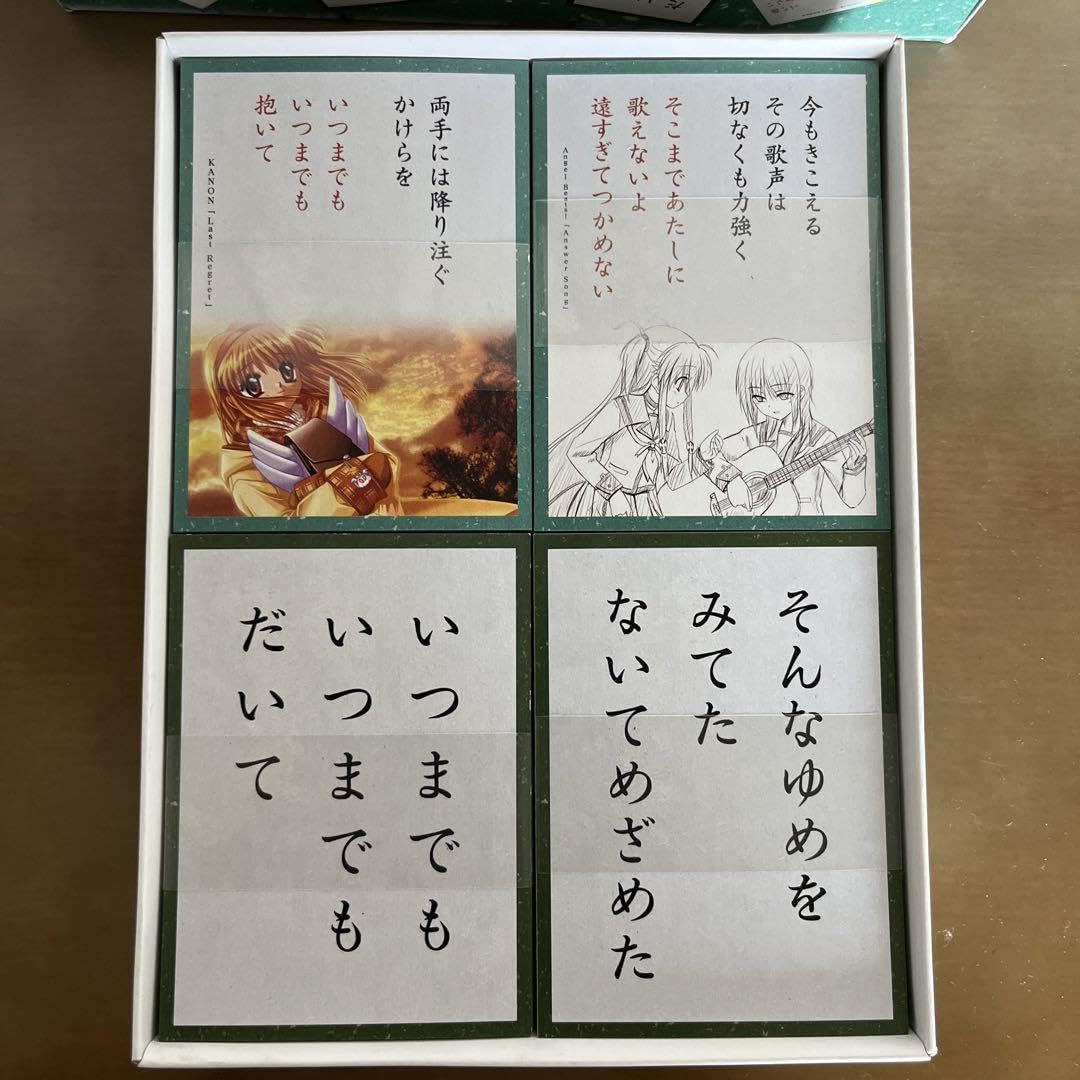 両手には降り注ぐ
かけらを
いつまでも
いつまでも
抱いて
KANON「Last Regret」
今もきこえる
その歌声は
切なくも力強く
そこまであたしに
歌えないよ
遠すぎてつかめない
Angel Beats!「Answer Song」
いつまでも
いつまでも
だいて
そんなゆめを
みてた
ないてめざめた